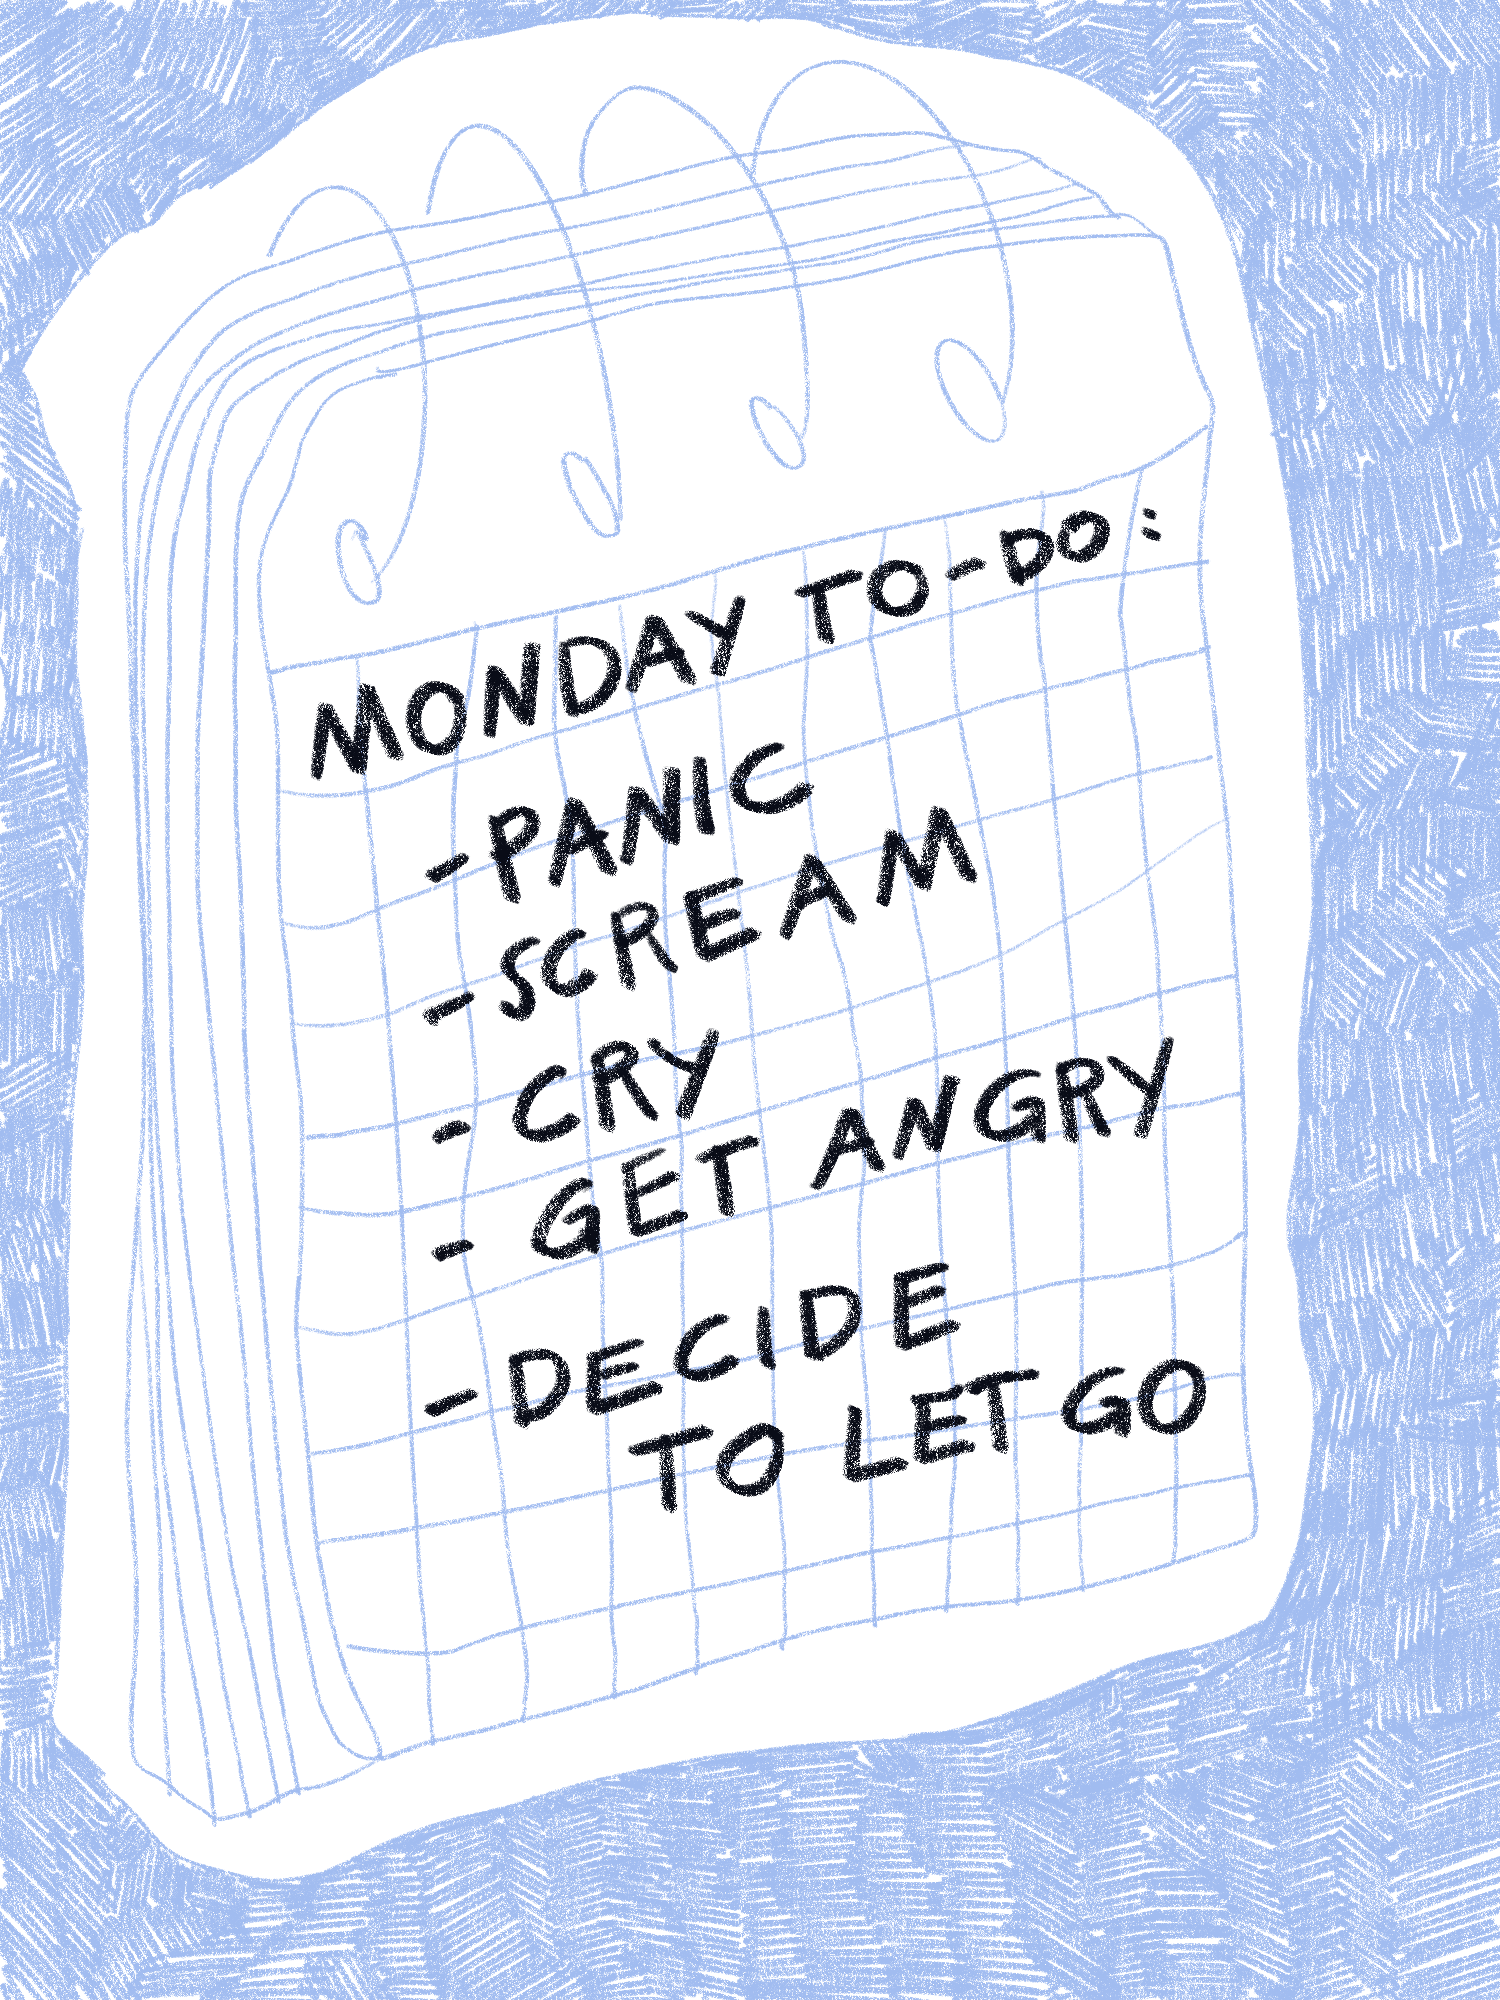 MONDAY TO-DO:
- PANIC
- SCREAM
- CRY
- GET ANGRY
- DECIDE
TO LET GO